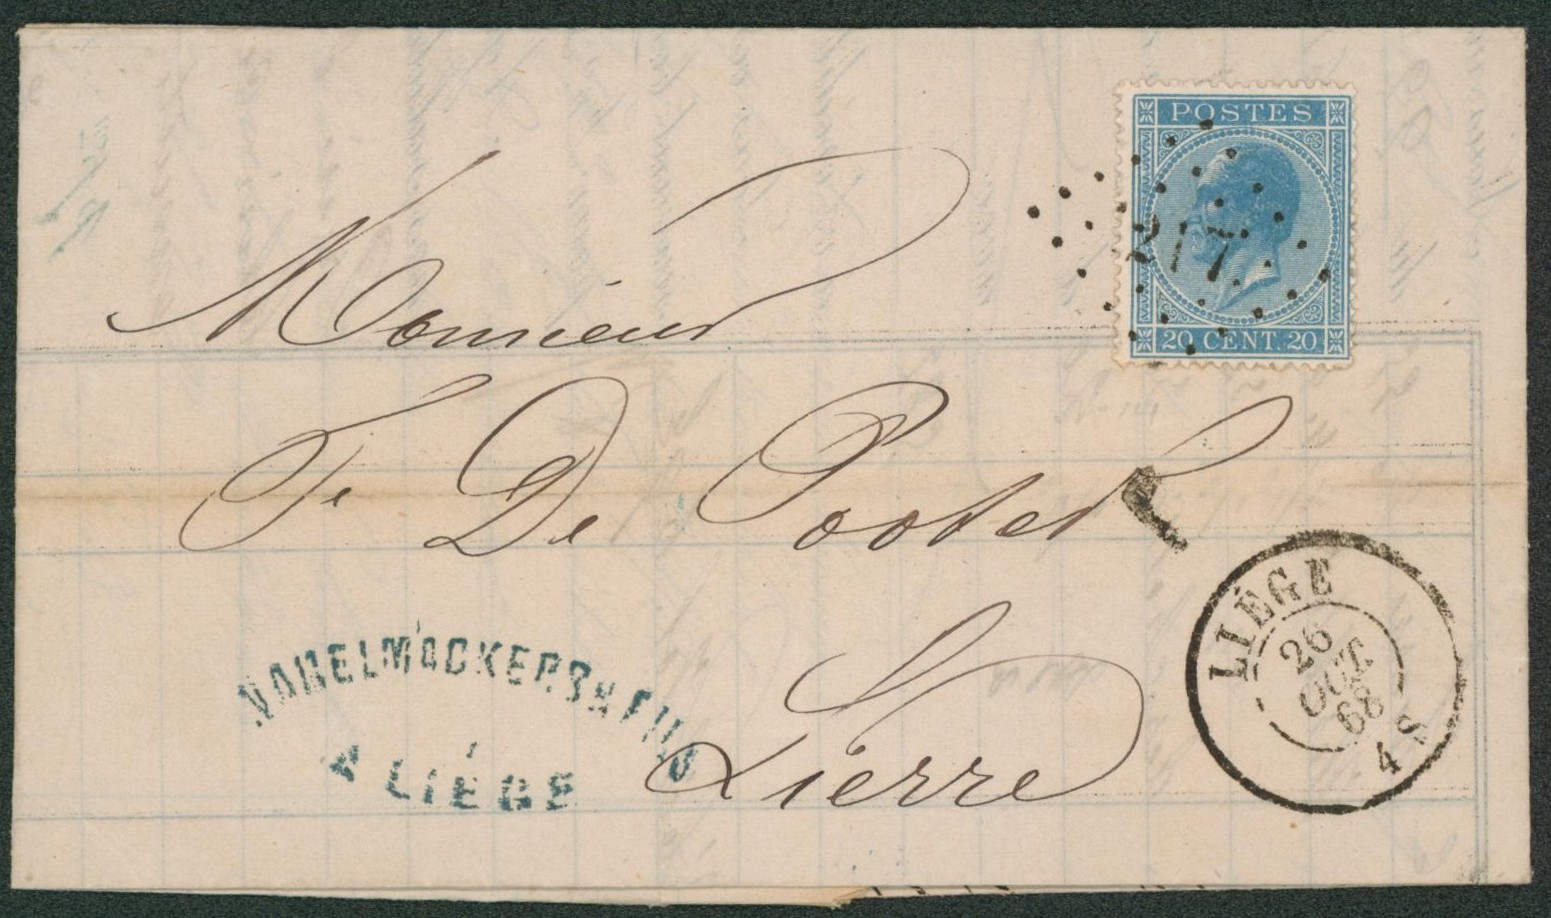 POSTES
217
20 CENT. 20
Monsieur
Fr De Pooter
Lierre
NAGELMACKERS & FILS
A LIÉGE
LIÉGE
26
OCT.
68
4 S